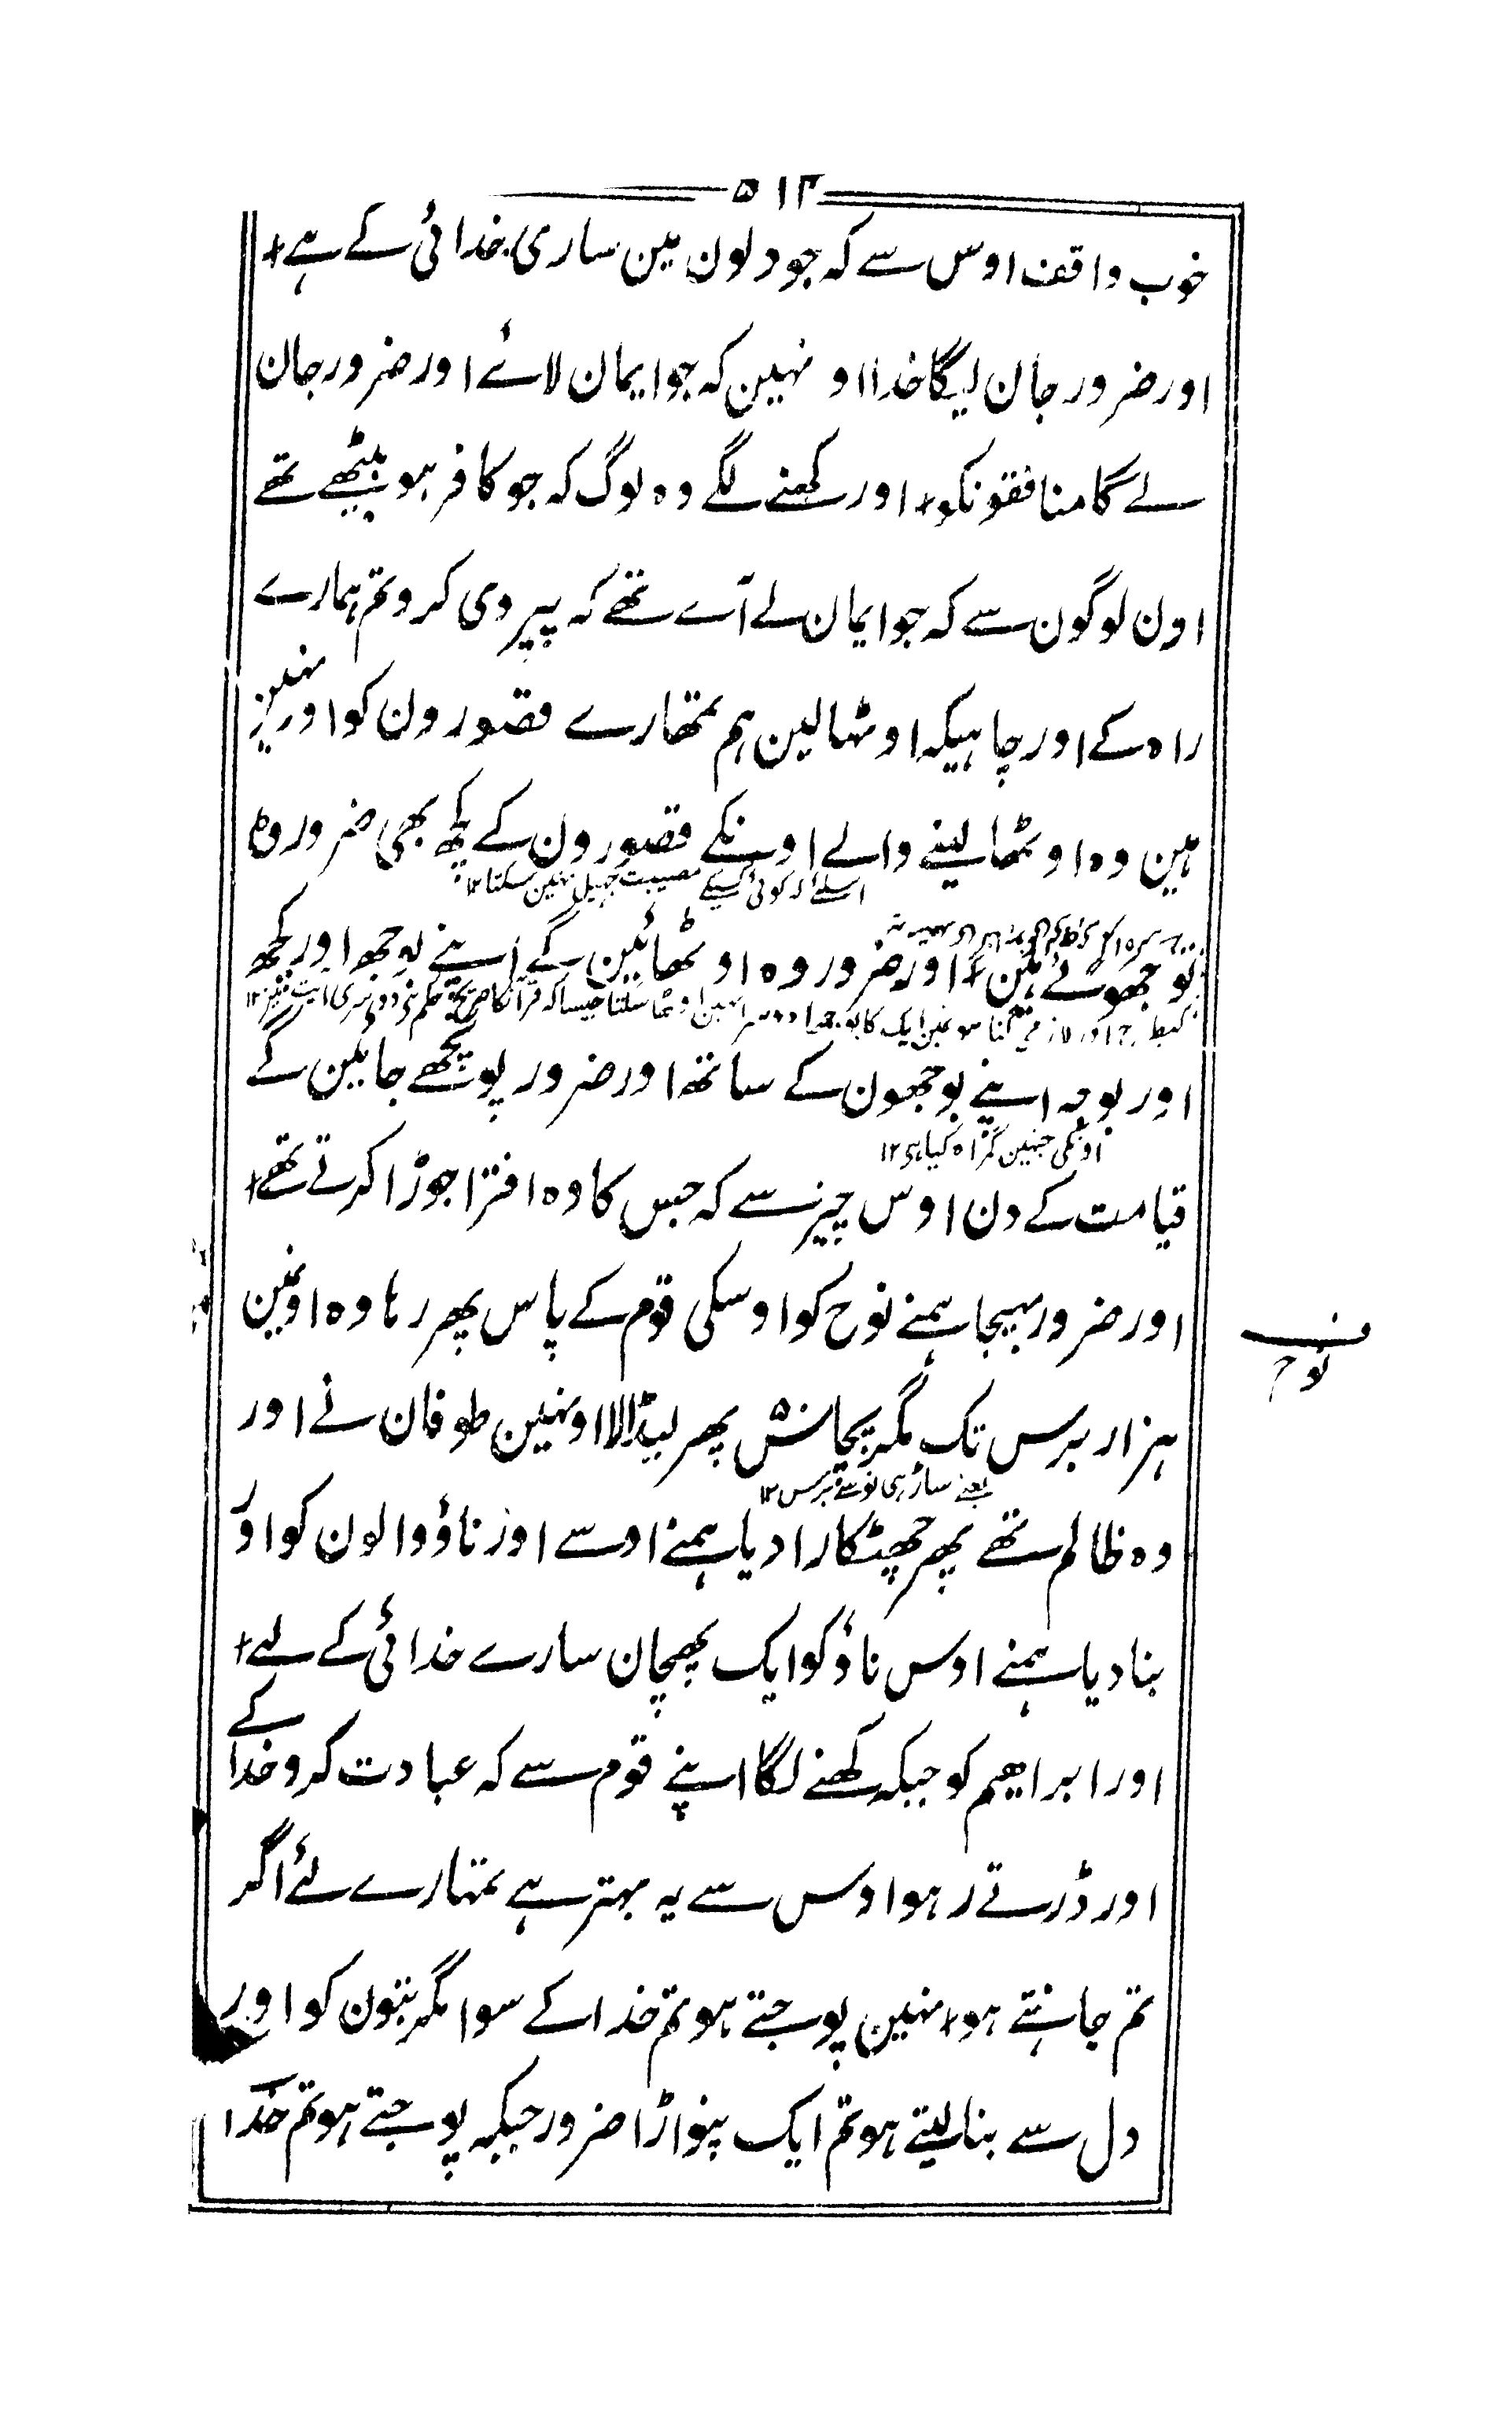 ۵۱۳
خوب واقف اوس سے کہ جو دلون مین ساری خدائی کے ہے +
اور ضرور جان لیگا خدا اونہین کہ جو ایمان لائے اور ضرور جان
لے گا منافقونکو + اور کہنے لگے وہ لوگ کہ جو کافر ہو بیٹھے تھے
اون لوگون سے کہ جو ایمان لے آے تھے کہ پیروی کرو تم ہمارے
راہ کے اور چاہیکہ اوٹھالین ہم تمھارے قصورون کو اور نہین
ہین وہ اوٹھا لینے والے اونکے قصورون کے کچھ بھی ضرور وہ
اسلئے کہ کوئی کسیکے مصیبت جھیل نہین سکتا ۱۲
تو جھوٹے ہین + اور ضرور وہ اوٹھائین گے اپنے بوجھ اور کچھ
ایک کا بوجھ دوسرا نہین اوٹھا سکتا جیسا کہ قرآنکا صریح حکم ہے دوسری آیت مین ۱۲
اور بوجہ اپنے بوجھون کے ساتھ اور ضرور پوچھے جائین گے
اونکی جنہین گمراہ کیا ہی ۱۲
قیامت کے دن اوس چیز سے کہ جس کا وہ افترا جوڑا کرتے تھے +
اور ضرور بہیجا ہمنے نوح کو اوسکی قوم کے پاس پھر رہا وہ اونمین
نوح
ہزار برس تک مگر پچاس پھر لیڈالا اونہین طوفان نے اور
یعنے ساڑہی نو سے برس ۱۲
وہ ظالم تھے پھر چھٹکارا دیا ہمنے اوسے اور ناؤ والون کو اور
بنا دیا ہمنے اوس ناؤ کو ایک پھچان سارے خدائی کے لیے +
اور ابراھیم کو جبکہ کہنے لگا اپنے قوم سے کہ عبادت کرو خدا کے
اور ڈرتے رہو اوس سے یہ بہتر ہے تمہارے لئے اگر
تم جانتے ہو + نہین پوجتے ہو تم خدا کے سوا مگر بتون کو اور
دل سے بنا لیتے ہو تم ایک پنواڑا ضرور جبکہ پوجتے ہو تم خدا